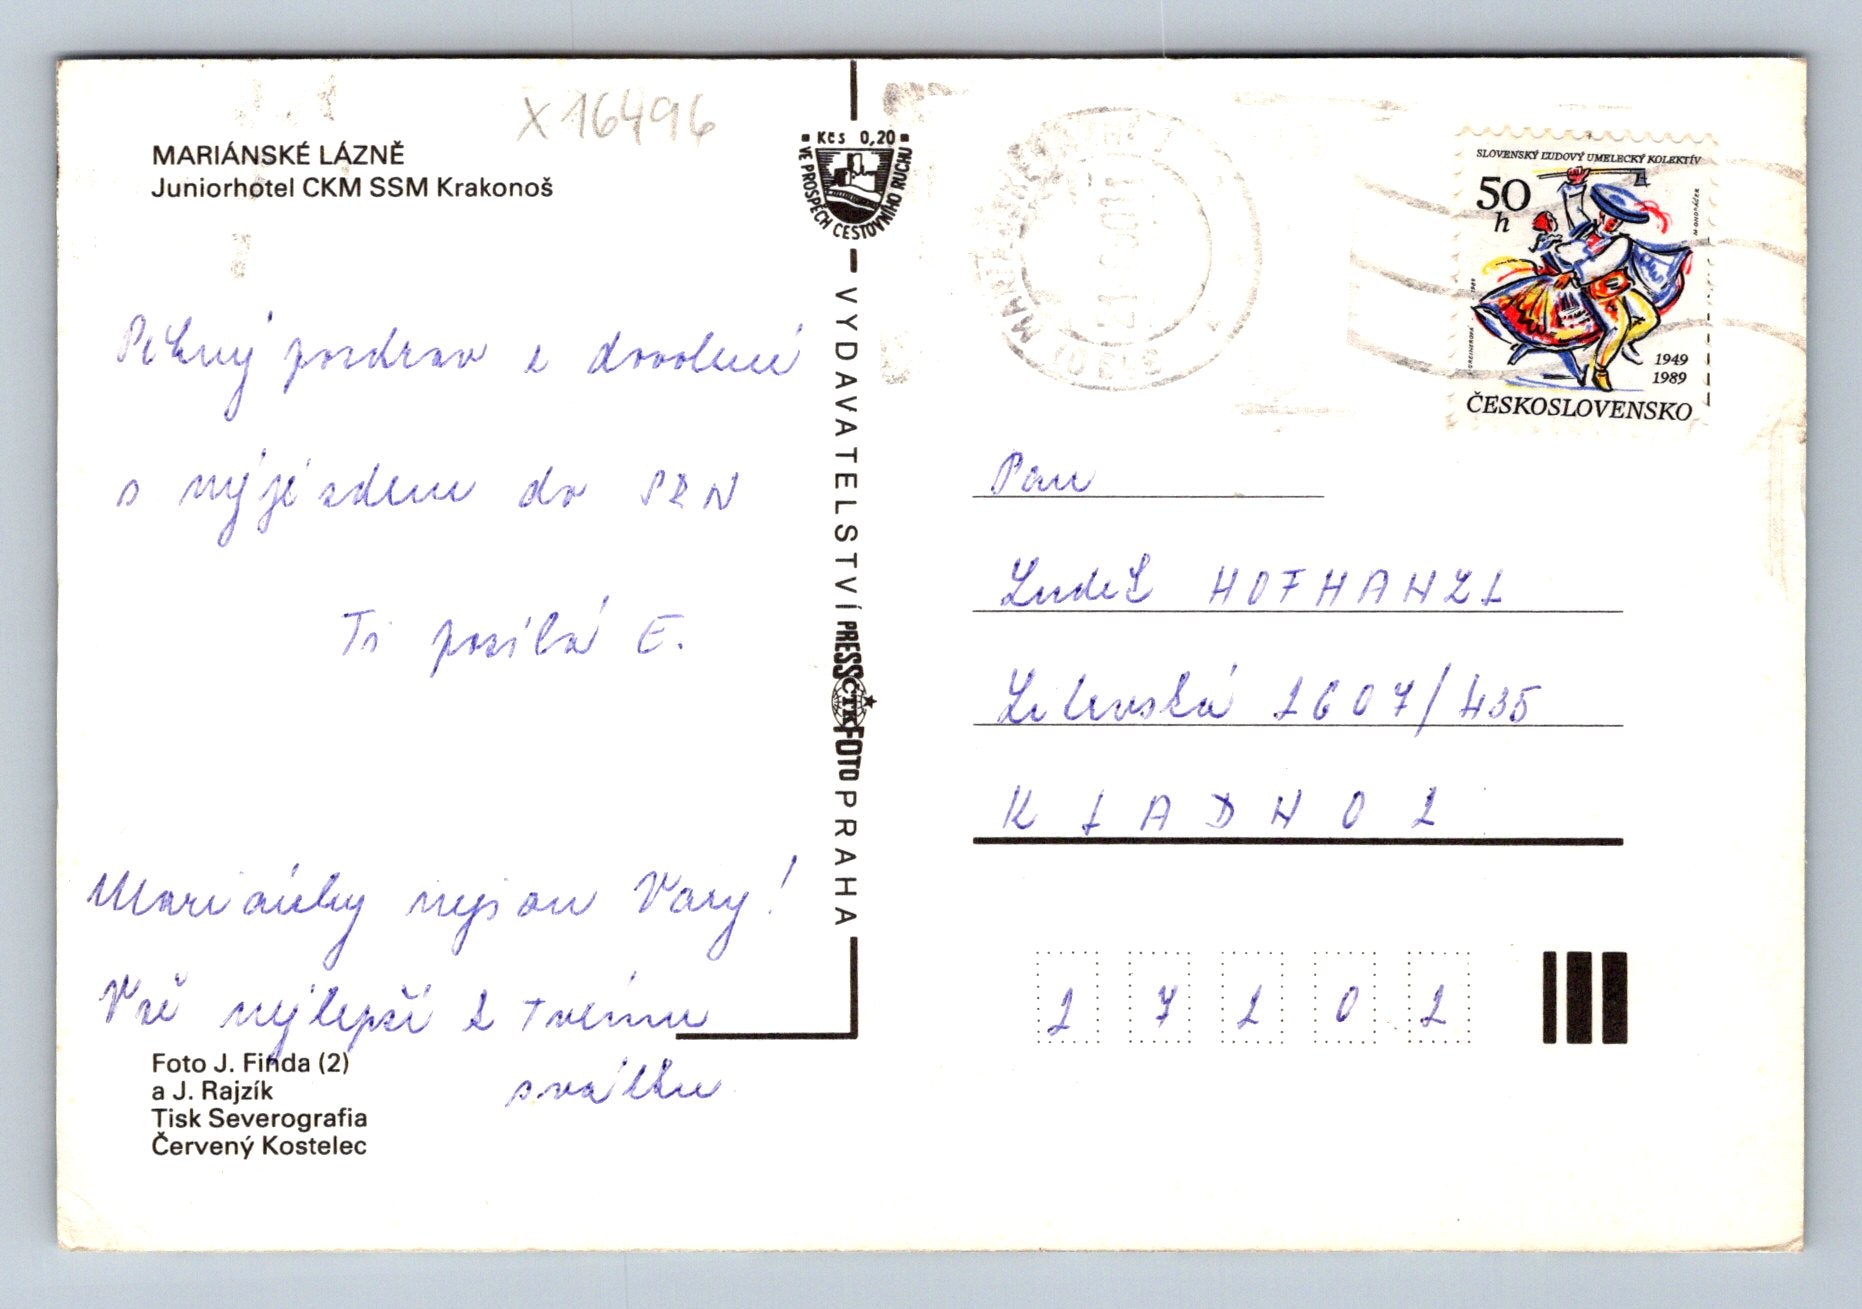 X 16496
MARIÁNSKÉ LÁZNĚ
Juniorhotel CKM SSM Krakonoš
Kčs 0,20
VE PROSPĚCH CESTOVNÍHO RUCHU
Pěkný pozdrav z dovolené
s výjezdem do SRN
Ti posílá E.
Mariánky nejsou Vary!
Vše nejlepší k Tvému
svátku
Foto J. Finda (2)
a J. Rajzík
Tisk Severografia
Červený Kostelec
VYDAVATELSTVÍ PRESSFOTO PRAHA
ČTK
SLOVENSKÝ ĽUDOVÝ UMELECKÝ KOLEKTÍV
50
h
1949
1989
ČESKOSLOVENSKO
Pan
Luděk HOFHANZL
1607/435
KLADNO 2
27201